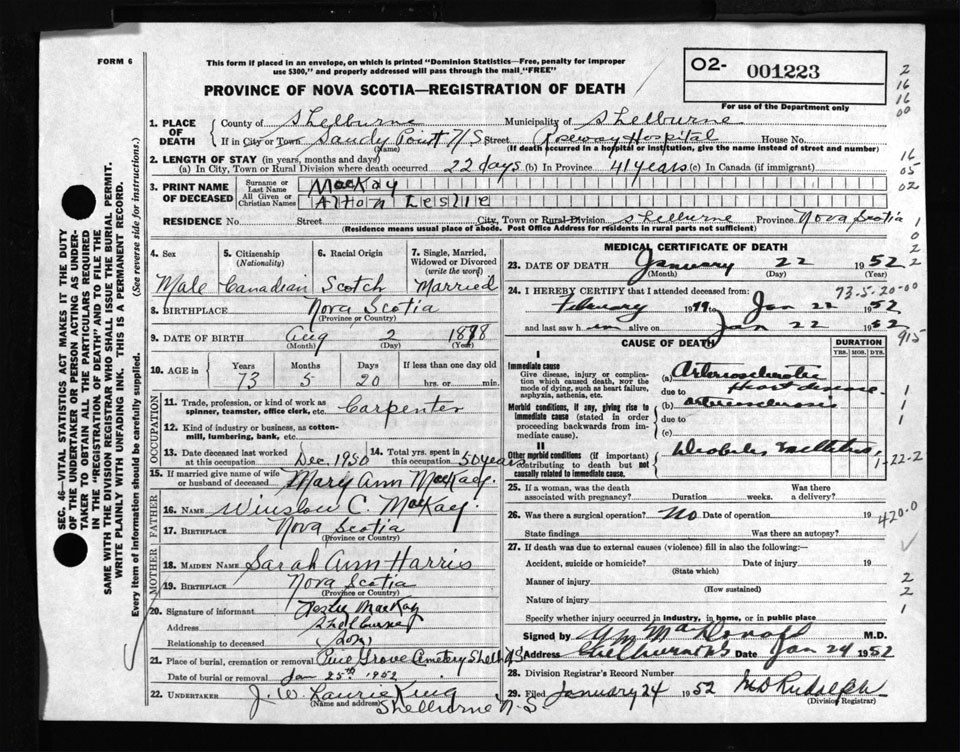 FORM 6
This form if placed in an envelope, on which is printed "Dominion Statistics—Free, penalty for improper
use $300," and properly addressed will pass through the mail "FREE"
PROVINCE OF NOVA SCOTIA—REGISTRATION OF DEATH
O2- 001223
For use of the Department only
2
16
16
00
1. PLACE OF DEATH
County of Shelburne Municipality of Shelburne
If in City or Town Sandy Point N S Street Roseway Hospital House No.
(Name) (If death occurred in a hospital or institution, give the name instead of street and number)
2. LENGTH OF STAY (in years, months and days)
(a) In City, Town or Rural Division where death occurred 22 days (b) In Province 41 years (c) In Canada (if immigrant)
16
05
02
3. PRINT NAME OF DECEASED
Surname or Last Name MacKay
All Given or Christian Names Leslie
RESIDENCE No. Street City, Town or Rural Division Shelburne Province Nova Scotia
(Residence means usual place of abode. Post Office Address for residents in rural parts not sufficient)
1
0
2
2
4. Sex 5. Citizenship (Nationality) 6. Racial Origin 7. Single, Married, Widowed or Divorced (write the word)
Male Canadian Scotch Married
8. BIRTHPLACE Nova Scotia
(Province or Country)
9. DATE OF BIRTH Aug 2 1878
(Month) (Day) (Year)
10. AGE in Years Months Days If less than one day old
73 5 20 hrs. or min.
OCCUPATION
11. Trade, profession, or kind of work as spinner, teamster, office clerk, etc. Carpenter
12. Kind of industry or business, as cotton-mill, lumbering, bank, etc.
13. Date deceased last worked at this occupation Dec. 1950 14. Total yrs. spent in this occupation 50 years
15. If married give name of wife or husband of deceased Mary Ann MacKay.
FATHER
16. NAME Winslow C. MacKay.
17. BIRTHPLACE Nova Scotia
(Province or Country)
MOTHER
18. MAIDEN NAME Sarah Ann Harris
19. BIRTHPLACE Nova Scotia
(Province or Country)
20. Signature of informant Leslie MacKay
Address Shelburne
Relationship to deceased (son)
21. Place of burial, cremation or removal Pine Grove Cemetery Shelb N.S
Date of burial or removal Jan 25th 1952
22. UNDERTAKER J. W. King
(Name and address) Shelburne N.S.
MEDICAL CERTIFICATE OF DEATH
23. DATE OF DEATH January 22 1952
(Month) (Day) (Year)
24. I HEREBY CERTIFY that I attended deceased from: 73-5-20-00
February to Jan 22 1952
and last saw him alive on Jan 22 1952
915
CAUSE OF DEATH
DURATION
YRS. MOS. DYS.
I
Immediate cause
Give disease, injury or complication which caused death, NOT the mode of dying, such as heart failure, asphyxia, asthenia, etc.
(a) Arteriosclerotic heart disease
due to
Morbid conditions, if any, giving rise to immediate cause (stated in order proceeding backwards from immediate cause).
(b) arteriosclerosis
due to
(c)
1
1
1
II
Other morbid conditions (if important) contributing to death but not causally related to immediate cause.
Diabetes mellitus
1-22-2
25. If a woman, was the death associated with pregnancy? Duration weeks. Was there a delivery?
26. Was there a surgical operation? No Date of operation 19
420.0
State findings Was there an autopsy?
27. If death was due to external causes (violence) fill in also the following:—
Accident, suicide or homicide? Date of injury 19
(State which)
Manner of injury
(How sustained)
Nature of injury
2
2
1
Specify whether injury occurred in industry, in home, or in public place
Signed by M.D.
Address Shelburne N S Date Jan 24 1952
28. Division Registrar's Record Number
29. Filed January 24 1952 Rudolph
(Division Registrar)
SEC. 46—VITAL STATISTICS ACT MAKES IT THE DUTY
OF THE UNDERTAKER OR PERSON ACTING AS UNDER-
TAKER TO OBTAIN ALL THE PARTICULARS REQUIRED
IN THE "REGISTRATION OF DEATH" AND TO FILE THE
SAME WITH THE DIVISION REGISTRAR WHO SHALL ISSUE THE BURIAL PERMIT.
WRITE PLAINLY WITH UNFADING INK. THIS IS A PERMANENT RECORD.
Every item of information should be carefully supplied. (See reverse side for instructions.)